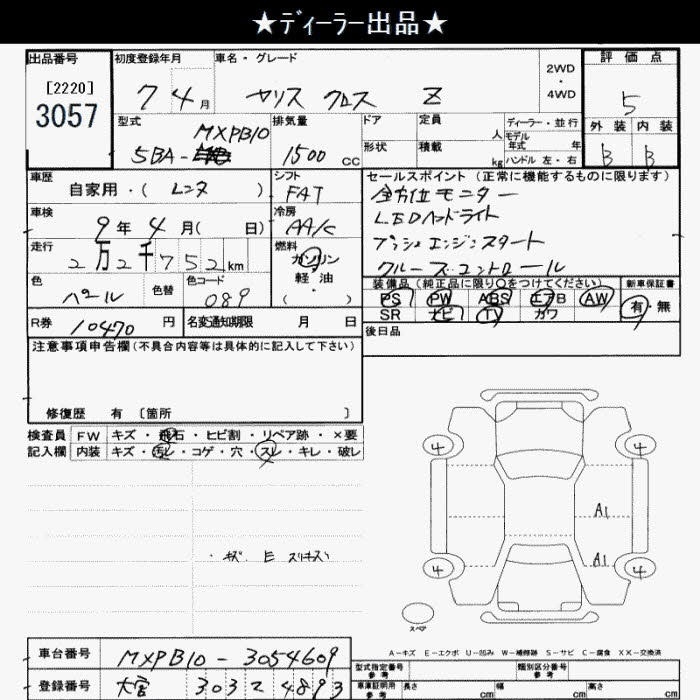 ★ディーラー出品★
出品番号 初度登録年月 車名・グレード 2WD・4WD 評価点
[2220]
3057
7 4月 ヤリス クロス Z 5
型式 MXPB10 排気量 ドア 定員 人 ディーラー・並行
5BA- 1500 cc 形状 積載 kg モデル年式 年
ハンドル 左・右
外装 内装
B B
車歴 自家用・( レンタ ) シフト FAT
セールスポイント (正常に機能するものに限ります)
全方位モニター
LEDヘッドライト
プッシュエンジンスタート
クルーズコントロール
車検 9年 4月( 日) 冷房 AA/C
走行 2万2千752km 燃料 ガソリン 軽油・( )
色 パール 色替 色コード 089
装備品(純正品に限り○をつけてください) 新車保証書
PS PW ABS エアB AW 有・無
SR ナビ TV カワ
R券 10470円 名変通知期限 月 日
後日品
注意事項申告欄(不具合内容等は具体的に記入して下さい)
修復歴 有 〔箇所 〕
検査員 FW キズ・飛石・ヒビ割・リペア跡・×要
記入欄 内装 キズ・汚レ・コゲ・穴・スレ・キレ・破レ
・キズ. E スリキズ)
4 4
A1
A1
4 4
スペア
A-キズ E-エクボ U-凹み W-補修跡 S-サビ C-腐食 XX-交換済
車台番号 MXPB10-3054609
登録番号 大宮 303 2 4893
型式指定番号 参考 類別区分番号 参考
車庫証明用 参考 長さ cm 幅 cm 高さ cm